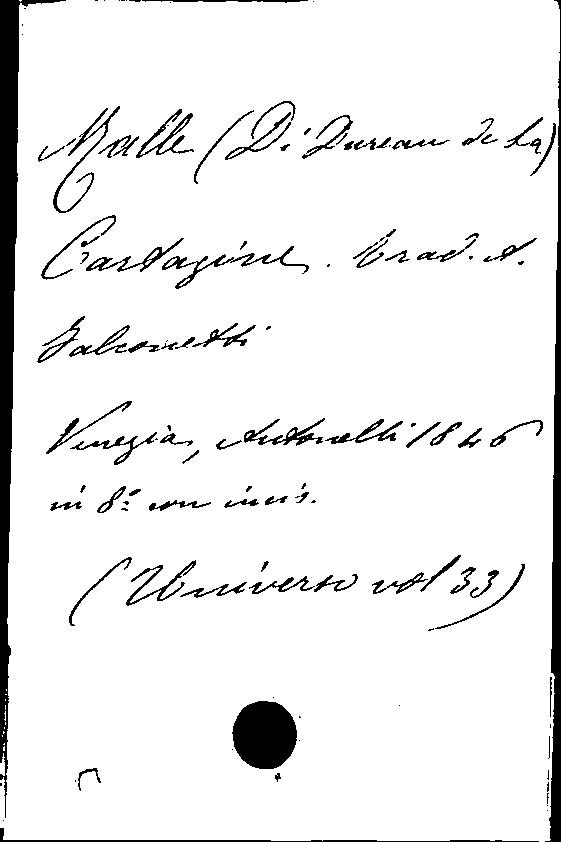 Malle (Di Dureau de La)
Cartagine. Trad. A.
Falconetti
Venezia, Antonelli 1846
in 8º con incis.
(Universo vol 33)